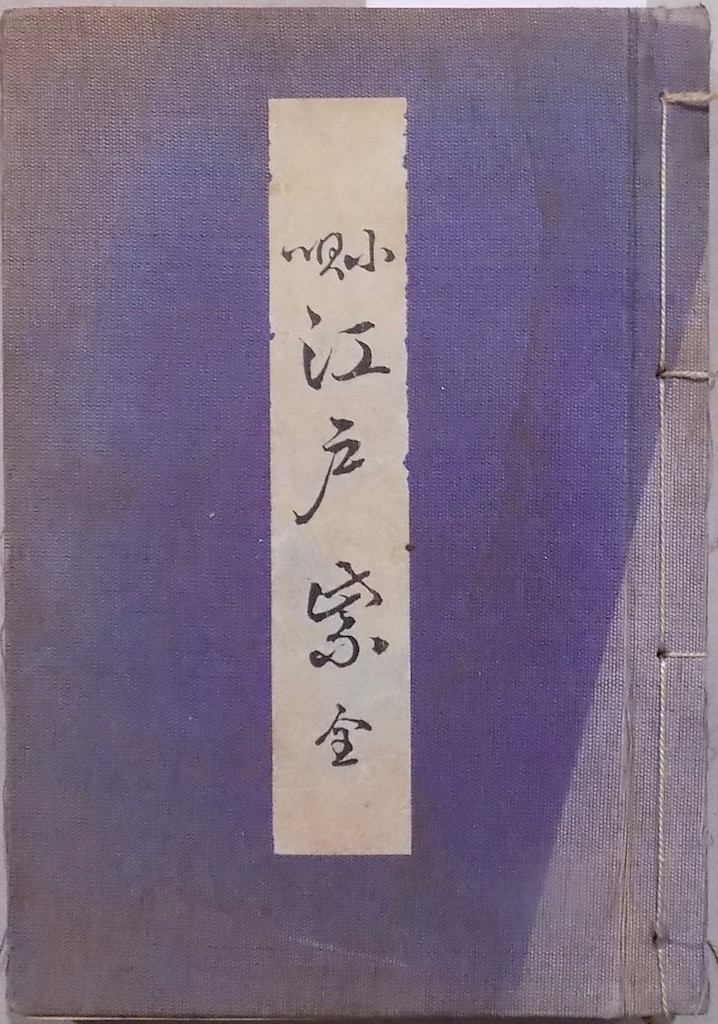 小唄
江戸紫全